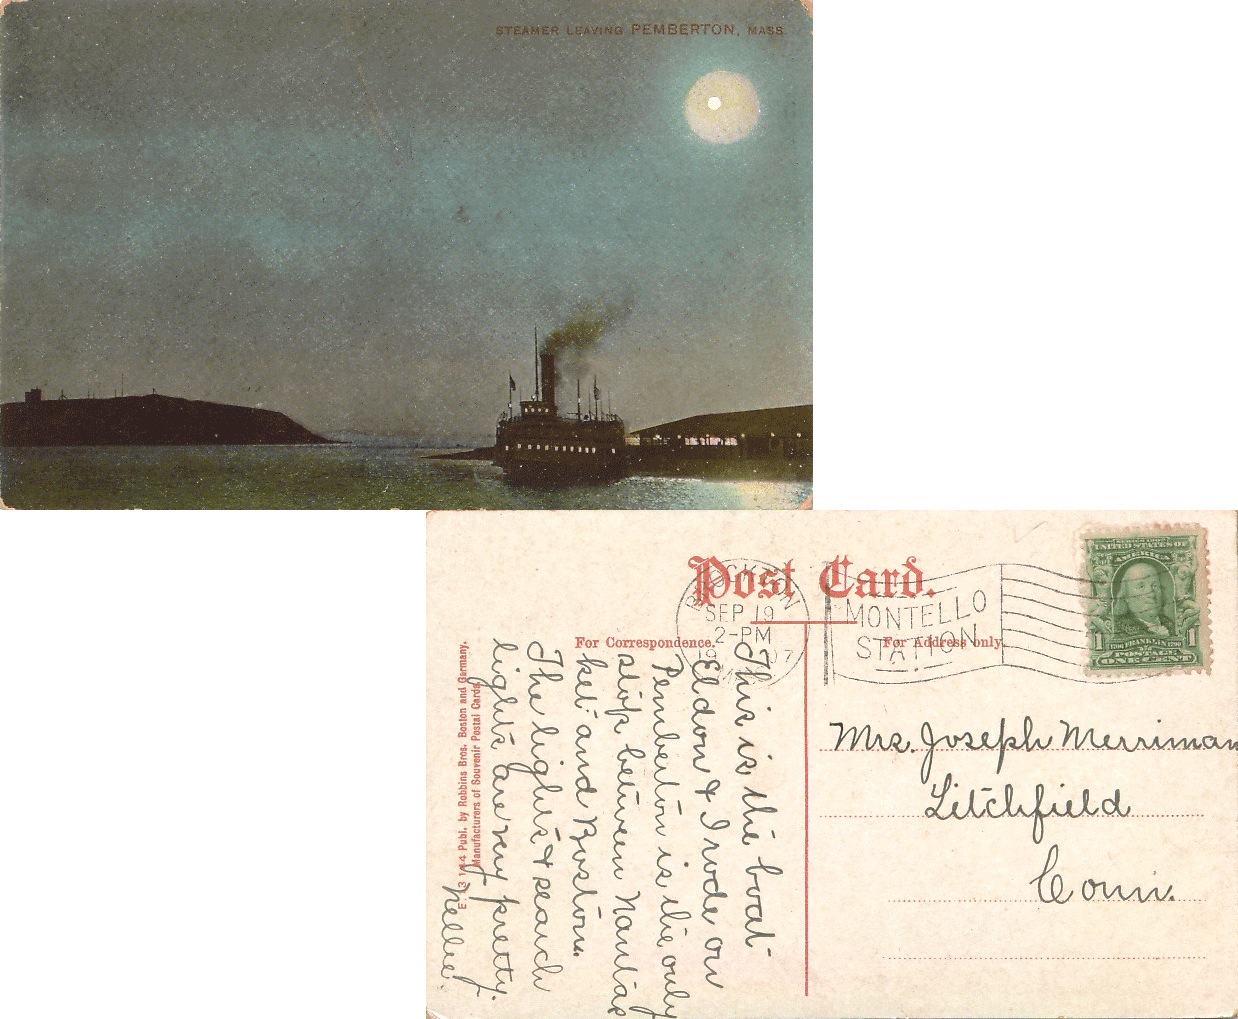 STEAMER LEAVING PEMBERTON, MASS.
Post Card.
BROCKTON
SEP 19
2-PM
MONTELLO
STATION
UNITED STATES OF
AMERICA
1 FRANKLIN 1
POSTAGE
ONE CENT
For Correspondence.
For Address only.
This is the boat
Eldon & I rode on
Pemberton is the only
stop between Nantas
ket and Boston.
The lights & search
lights are very pretty.
Nellie.
Publ. by Robbins Bros. Boston and Germany.
Manufacturers of Souvenir Postal Cards.
Mrs. Joseph Merriman
Litchfield
Conn.